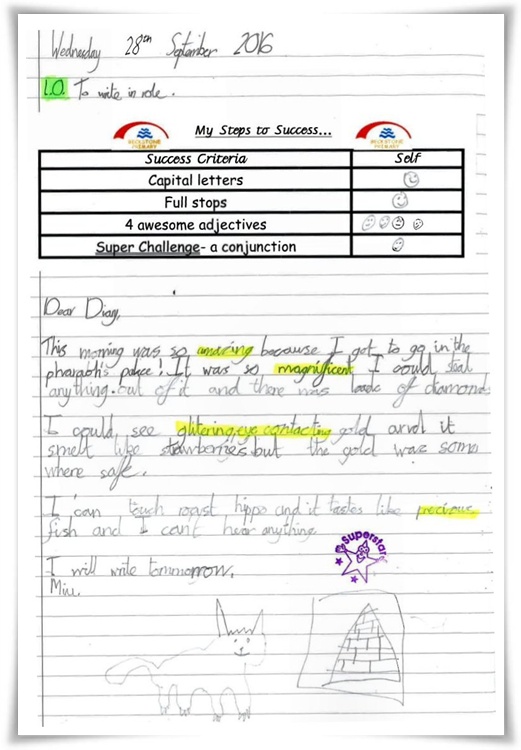 Wednesday 28th September 2016
L.O. To write in role.
My Steps to Success...
BECKSTONE
PRIMARY
BECKSTONE
PRIMARY
Success Criteria Self
Capital letters
Full stops
4 awesome adjectives
Super Challenge- a conjunction
Dear Diary,
This morning was so amazing because I got to go in the
pharaoh's palace! It was so magnificent I could steal
anything out of it and there was loads of diamonds
I could see glittering,eye contacting gold and it
smelt like strawberries.but the gold was some
where safe.
I can touch roast hippo and it tastes like precious
fish and I can't hear anything.
Superstar
I will write tommorrow.